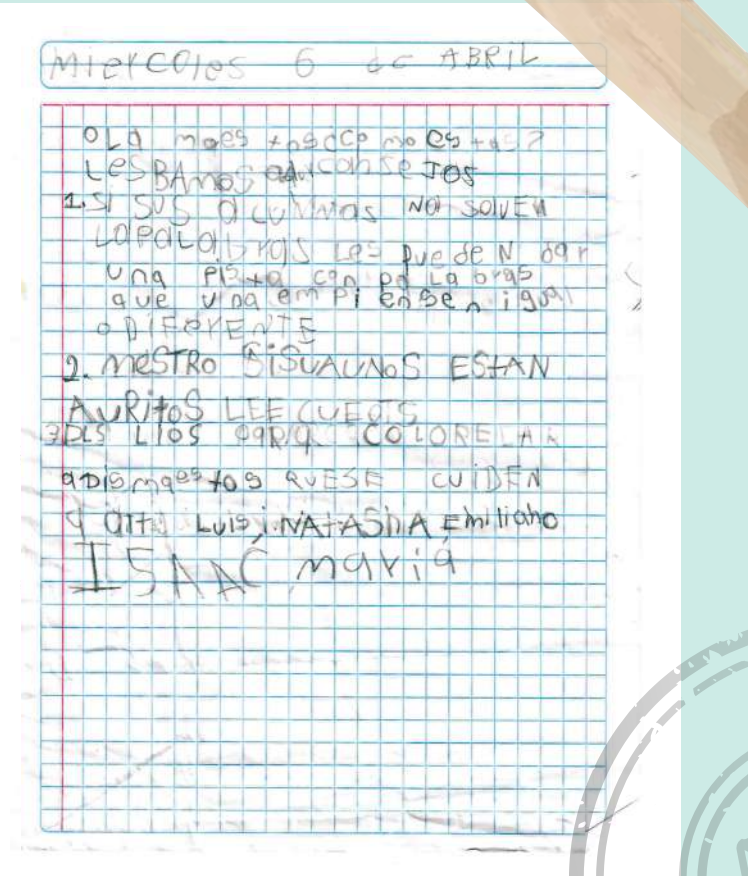 Miercoles 6 de ABRIL
OLA maestos como estas?
LES BAMOS a consejos
1. SI SUS alumnos NO solVEN
LaPaLabras Les PuedeN dar
una Pista con pa La bras
que una empi ensen igual
o DiFerENTE
2. MESTRO SISUAUNOS ESTAN
AuRitoS LEE CUEOTS
3 DLS LIOS PaRa COLORELAR
aDiS maestos QUESE CUiDEN
LuiS, NATASHA, Emiliano
ISAAC, maria